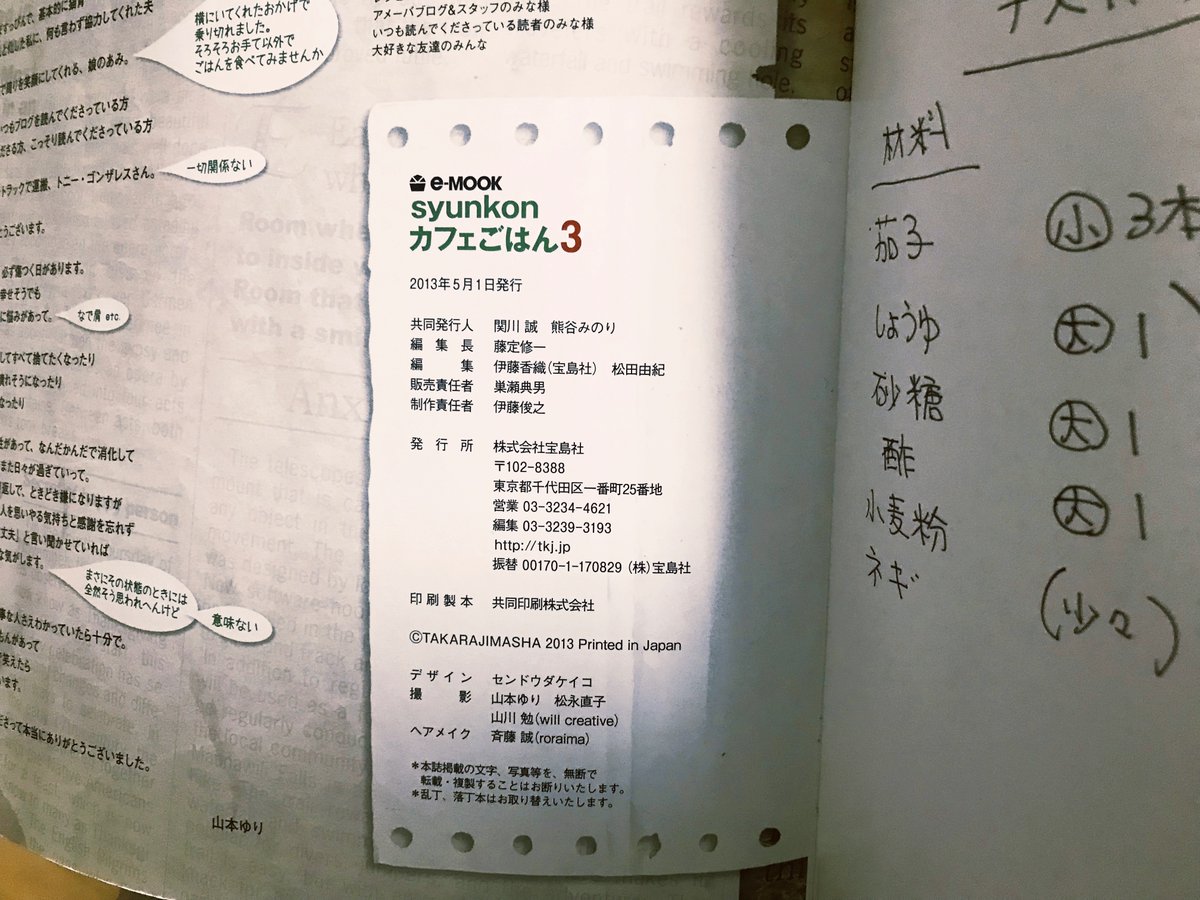 すっぴんで、基本的に猫背
と化した私に、何も言わず協力してくれた夫
で周りを笑顔にしてくれる、娘のあみ。
いつもブログを読んでくださっている方
ださる方、こっそり読んでくださっている方
トラックで運搬、トニー・ゴンザレスさん。
とうございます。
必ず傷つく日があります。
幸せそうでも
に悩みがあって。
してすべて捨てたくなったり
潰れそうになったり
なったり
性があって、なんだかんだで消化して
また日々が過ぎていって。
返しで、ときどき嫌になりますが
人を思いやる気持ちと感謝を忘れず
丈夫」と言い聞かせていれば
な気がします。
事な人さえわかっていたら十分で。
もんがあって
で笑えたら
います。
ださって本当にありがとうございました。
山本ゆり
横にいてくれたおかげで
乗り切れました。
そろそろお手て以外で
ごはんを食べてみませんか
一切関係ない
なで肩 etc.
まさにその状態のときには
全然そう思われへんけど
意味ない
アメーバブログ&スタッフのみな様
いつも読んでくださっている読者のみな様
大好きな友達のみんな
e-MOOK
syunkon
カフェごはん3
2013年5月1日発行
共同発行人 関川 誠 熊谷みのり
編集長 藤定修一
編集 伊藤香織(宝島社) 松田由紀
販売責任者 巣瀬典男
制作責任者 伊藤俊之
発行所 株式会社宝島社
〒102-8388
東京都千代田区一番町25番地
営業 03-3234-4621
編集 03-3239-3193
http://tkj.jp
振替 00170-1-170829 (株)宝島社
印刷製本 共同印刷株式会社
©TAKARAJIMASHA 2013 Printed in Japan
デザイン センドウダケイコ
撮影 山本ゆり 松永直子
山川 勉(will creative)
ヘアメイク 斉藤 誠(roraima)
*本誌掲載の文字、写真等を、無断で
転載・複製することはお断りいたします。
*乱丁、落丁本はお取り替えいたします。
材料
茄子 小 3本
しょうゆ 大 1
砂糖 大 1
酢 大 1
小麦粉
ネギ (少々)